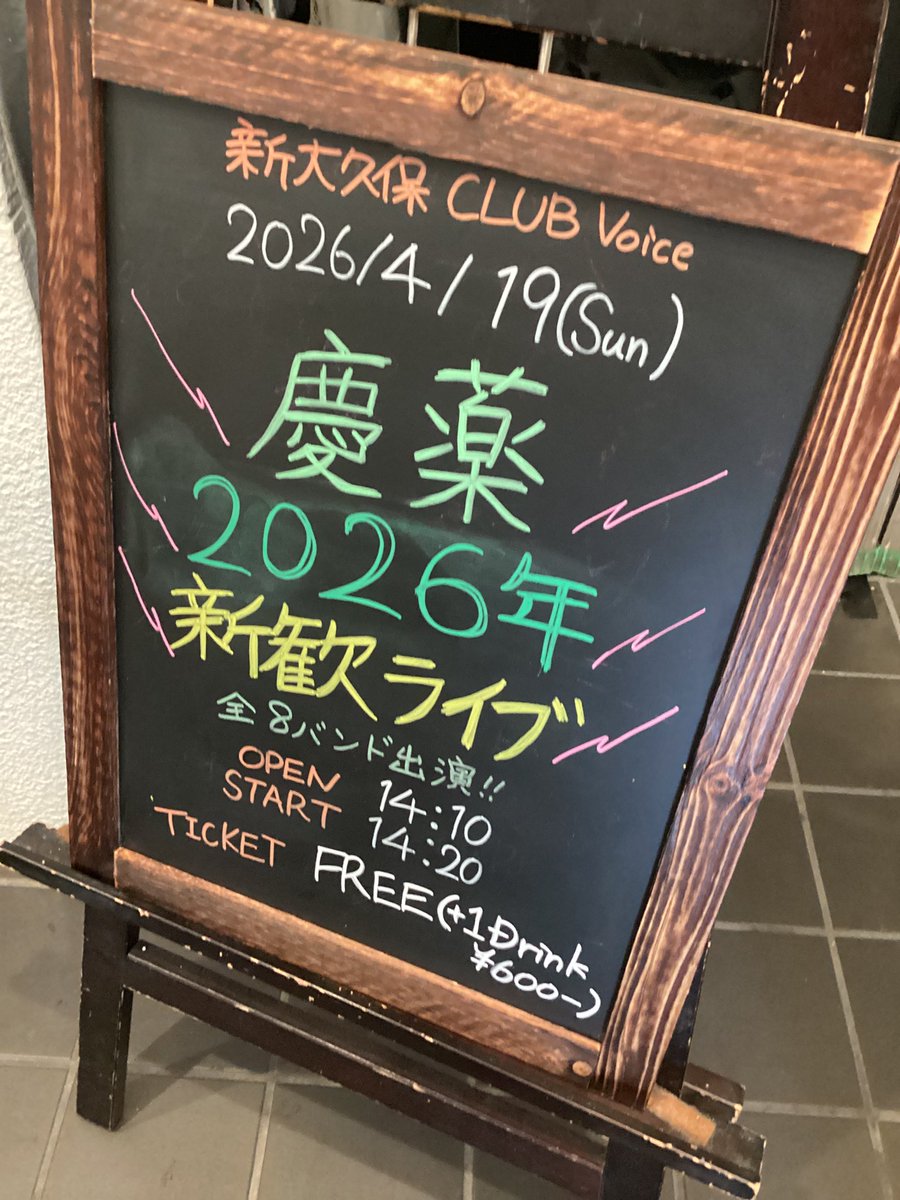 新大久保 CLUB Voice
2026/4/19(Sun)
慶薬
2026年
新歓ライブ
全8バンド出演!!
OPEN 14:10
START 14:20
TICKET FREE(+1Drink
¥600-)